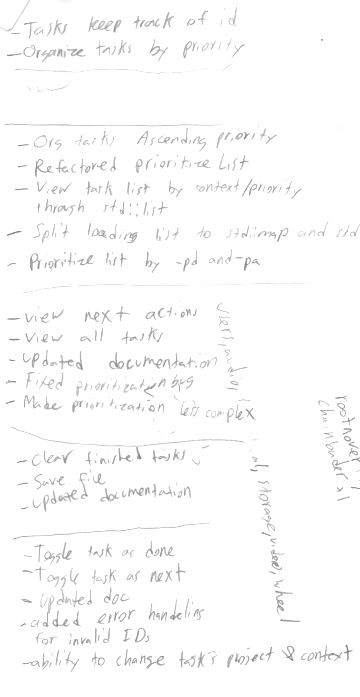 - Tasks keep track of id
- Organize tasks by priority
- Org tasks Ascending priority
- Refactored prioritize List
- View task list by context/priority
through std::list
- Split loading list to std::map and std
- Prioritize list by -pd and -pa
- view next actions
- View all tasks
- Updated documentation
- Fixed prioritization bug
- Made prioritization less complex
- Clear finished tasks
- Save file
- Updated documentation
- Toggle task as done
- Toggle task as next
- Updated doc
- added error handeling
for invalid IDs
- ability to change task's project & context
users, audio,
storage, video, wheel